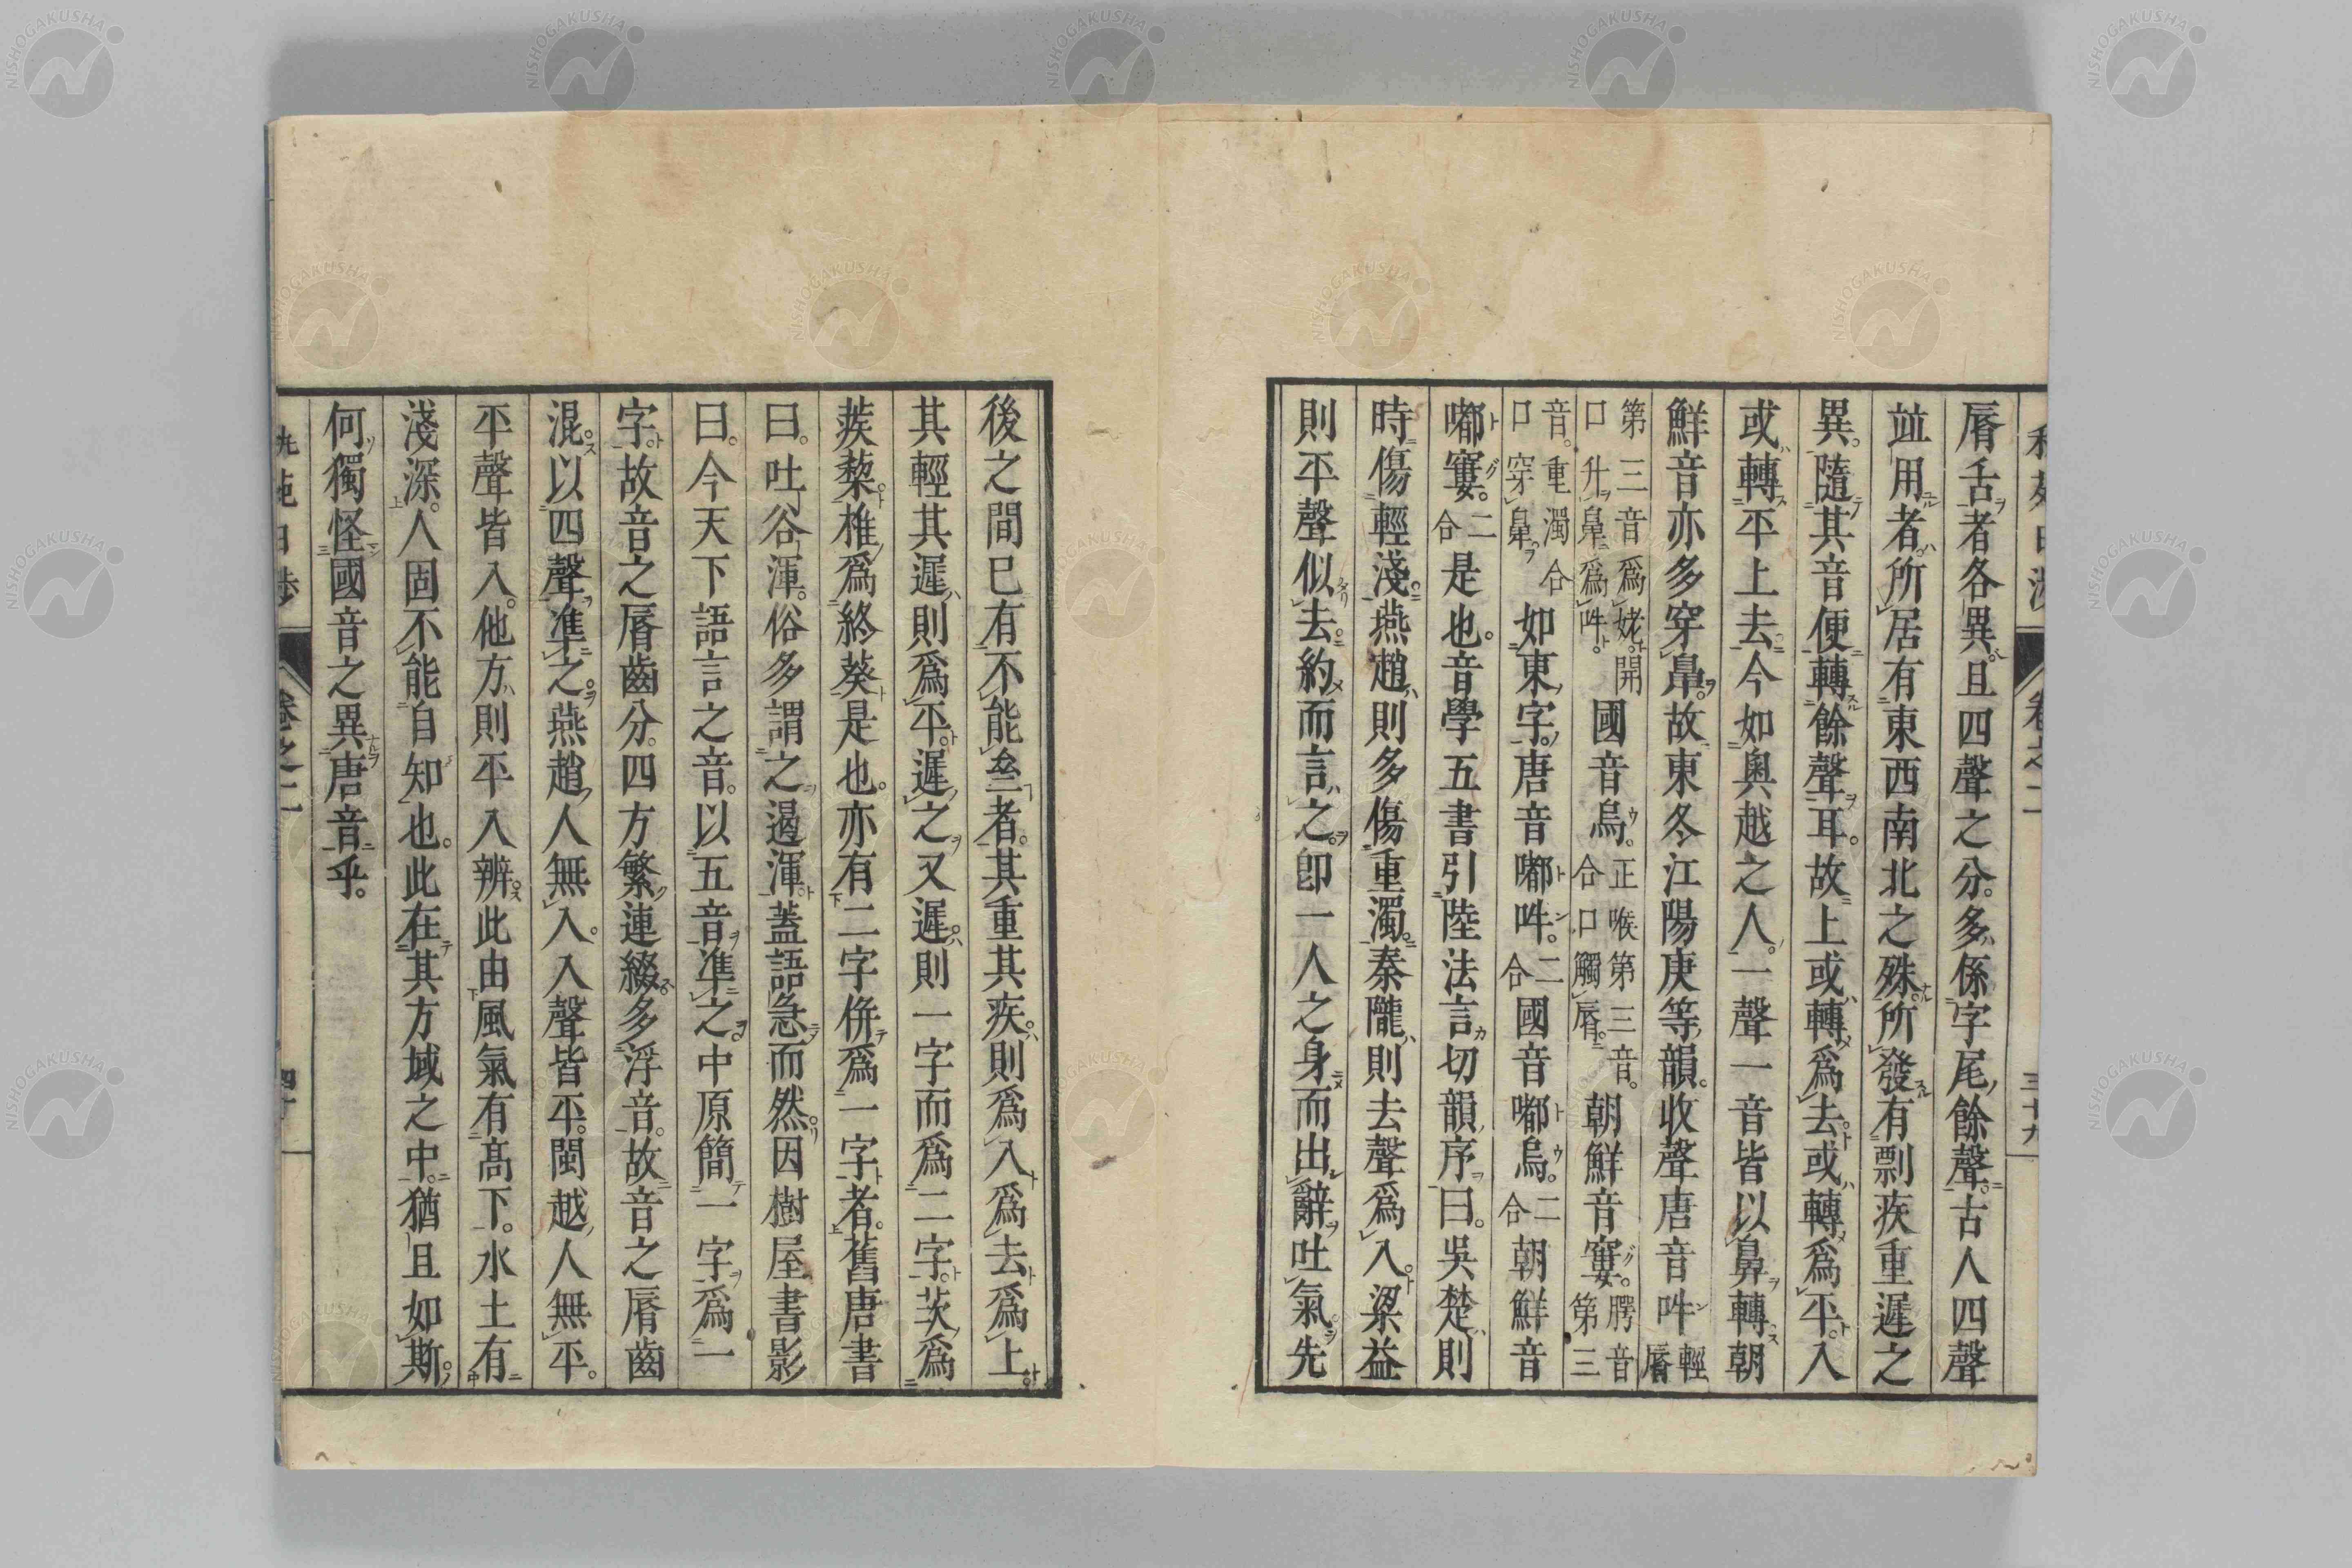 脣舌者各異且四聲之分。多係字尾餘聲。古人四聲
並用者。所居有東西南北之殊。所發有剽疾重遲之
異。隨其音便轉餘聲耳。故上或轉爲去。或轉爲平。入
或轉平上去。今如輿越之人。一聲一音皆以鼻轉。朝
鮮音亦多穿鼻。故東冬江陽庚等韻。收聲唐音吽輕脣
第三音爲姥。開口升鼻爲吽。國音烏。正喉第三音。合口觸脣。朝鮮音窶。腭音第三
音。重濁合口穿鼻。如東字。唐音嘟吽。二合國音嘟烏。二合朝鮮音
嘟窶。二合是也。音學五書引陸法言切韻序曰。吳楚則
時傷輕淺。燕趙則多傷重濁。秦隴則去聲爲入。梁益
則平聲似去。約而言之。卽一人之身而出辭吐氣。先
卷之二
三十九
後之間已有不能叁者。其重其疾。則爲入爲去爲上
其輕其遲則爲平。遲之又遲。則一字而爲二字。茨爲
蒺藜。椎爲終葵是也。亦有二字倂爲一字者。舊唐書
曰。吐谷渾。俗多謂之退渾。蓋語急而然。因樹屋書影
曰。今天下語言之音。以五音準之。中原簡一字爲一
字。故音之脣齒分。四方繁連綴多浮音。故音之脣齒
混。以四聲準之。燕趙人無入。入聲皆平。閩越人無平。
平聲皆入。他方則平入辨。此由風氣有高下。水土有
淺深。人固不能自知也。此在其方域之中。猶且如斯。
何獨怪國音之異唐音乎。
卷之二
四十